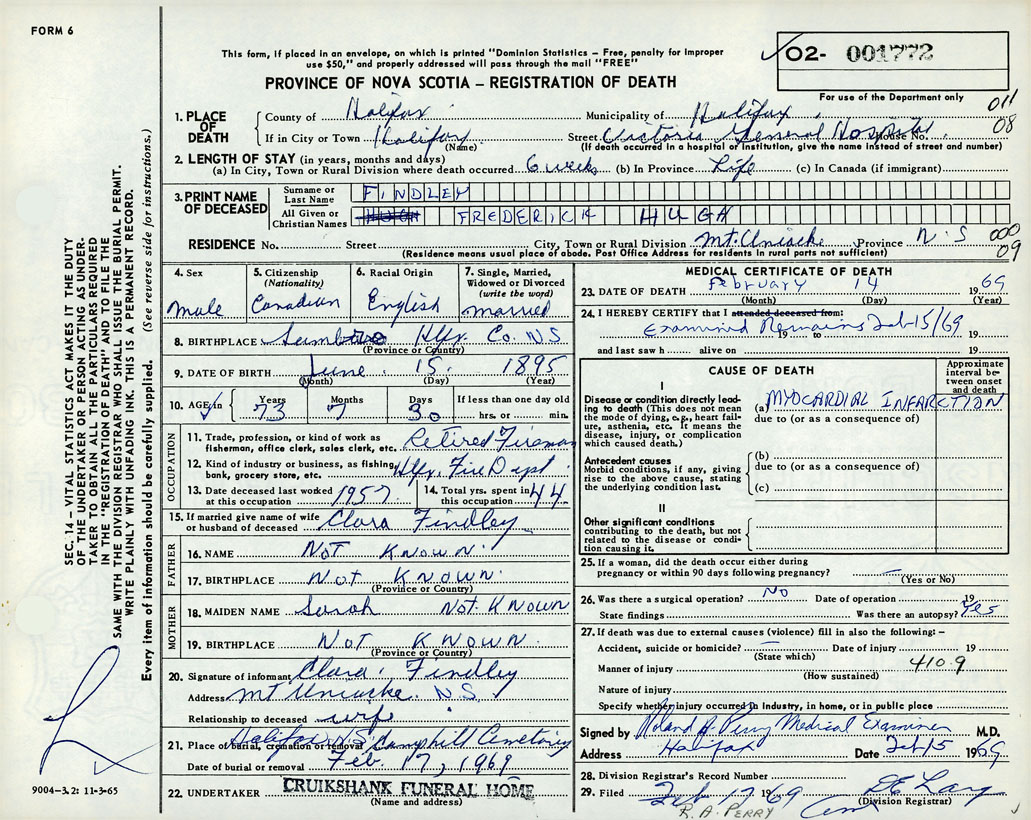 FORM 6
This form, if placed in an envelope, on which is printed "Dominion Statistics – Free, penalty for improper
use $50," and properly addressed will pass through the mail "FREE"
02- 001772
PROVINCE OF NOVA SCOTIA – REGISTRATION OF DEATH
For use of the Department only
011
08
1. PLACE OF DEATH
County of Halifax Municipality of Halifax
If in City or Town Halifax Street Victoria General Hospital House No.
(Name) (If death occurred in a hospital or institution, give the name instead of street and number)
2. LENGTH OF STAY (in years, months and days)
(a) In City, Town or Rural Division where death occurred 6 weeks (b) In Province Life (c) In Canada (if immigrant)
3. PRINT NAME OF DECEASED
Surname or Last Name FINDLEY
All Given or Christian Names HUGH FREDERICK HUGH
RESIDENCE No. Street City, Town or Rural Division Mt. Uniacke Province N.S
000
09
(Residence means usual place of abode. Post Office Address for residents in rural parts not sufficient)
4. Sex Male
5. Citizenship (Nationality) Canadian
6. Racial Origin English
7. Single, Married, Widowed or Divorced (write the word) married
8. BIRTHPLACE Sambro Hfx. Co. NS
(Province or Country)
9. DATE OF BIRTH June 15. 1895
(Month) (Day) (Year)
10. AGE in Years 73 Months 7 Days 30 If less than one day old hrs. or min.
OCCUPATION
11. Trade, profession, or kind of work as fisherman, office clerk, sales clerk, etc. Retired Fireman
12. Kind of industry or business, as fishing, bank, grocery store, etc. Hfx. Fire Dept
13. Date deceased last worked at this occupation 1957
14. Total yrs. spent in this occupation 44
15. If married give name of wife or husband of deceased Clara Findley
FATHER
16. NAME Not Known.
17. BIRTHPLACE Not Known.
(Province or Country)
MOTHER
18. MAIDEN NAME Sarah Not Known
19. BIRTHPLACE Not Known.
(Province or Country)
20. Signature of informant Clara Findley
Address Mt Uniacke. N.S.
Relationship to deceased wife
21. Place of burial, cremation or removal Halifax N.S. Camphill Cemetery
Date of burial or removal Feb. 17, 1969
22. UNDERTAKER CRUIKSHANK FUNERAL HOME
(Name and address)
MEDICAL CERTIFICATE OF DEATH
23. DATE OF DEATH February 14 1969
(Month) (Day) (Year)
24. I HEREBY CERTIFY that I attended deceased from:
Examined Remains Feb 15/69
19 to 19
and last saw h alive on 19
CAUSE OF DEATH
Approximate interval between onset and death
I
Disease or condition directly leading to death (This does not mean the mode of dying, e.g., heart failure, asthenia, etc. It means the disease, injury, or complication which caused death.)
(a) MYOCARDIAL INFARCTION
due to (or as a consequence of)
Antecedent causes
Morbid conditions, if any, giving rise to the above cause, stating the underlying condition last.
(b)
due to (or as a consequence of)
(c)
II
Other significant conditions contributing to the death, but not related to the disease or condition causing it.
25. If a woman, did the death occur either during pregnancy or within 90 days following pregnancy? –
(Yes or No)
26. Was there a surgical operation? No Date of operation 19
State findings Was there an autopsy? Yes
27. If death was due to external causes (violence) fill in also the following: –
Accident, suicide or homicide? – Date of injury 19
(State which)
Manner of injury 410.9
(How sustained)
Nature of injury
Specify whether injury occurred in industry, in home, or in public place
Signed by Roland A Perry Medical Examiner M.D.
Address Halifax Date Feb 15 1969
28. Division Registrar's Record Number
29. Filed Feb 17 1969
(Division Registrar)
R.A. PERRY
SEC. 14 – VITAL STATISTICS ACT MAKES IT THE DUTY
OF THE UNDERTAKER OR PERSON ACTING AS UNDER-
TAKER TO OBTAIN ALL THE PARTICULARS REQUIRED
IN THE "REGISTRATION OF DEATH" AND TO FILE THE
SAME WITH THE DIVISION REGISTRAR WHO SHALL ISSUE THE BURIAL PERMIT.
WRITE PLAINLY WITH UNFADING INK. THIS IS A PERMANENT RECORD.
Every item of information should be carefully supplied. (See reverse side for instructions.)
9004-3.2: 11-3-65